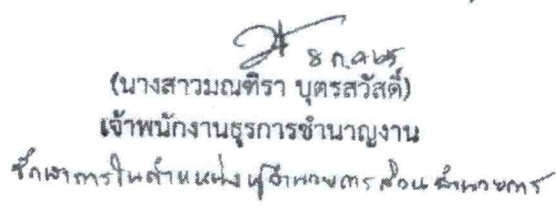 8 ก.ค. 65
(นางสาวมณฑิรา บุตรสวัสดิ์)
เจ้าพนักงานธุรการชำนาญงาน
รักษาการในตำแหน่งผู้อำนวยการส่วนอำนวยการ